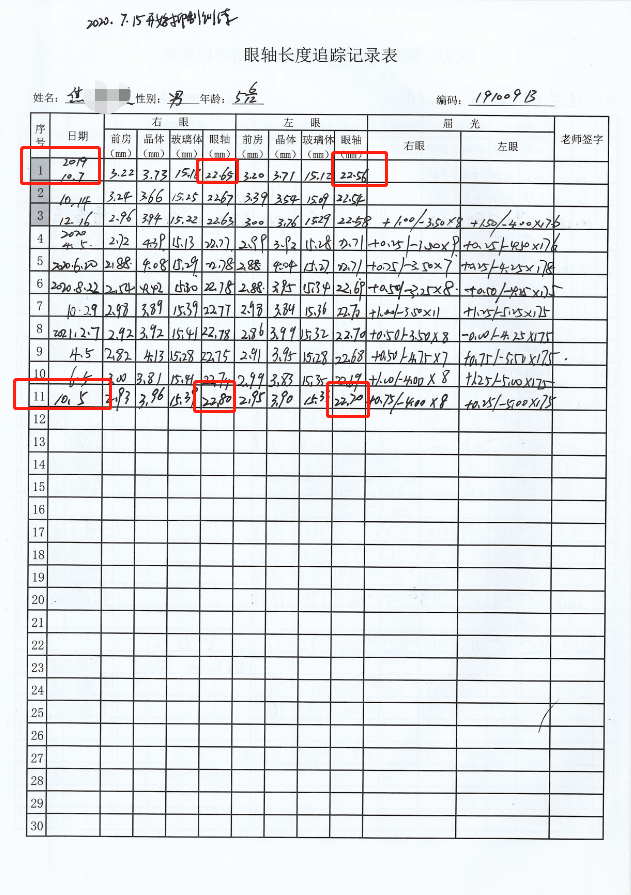 2020.7.15开始抑制训练
眼轴长度追踪记录表
姓名: 性别: 男 年龄: 5 6/12 编码: 191009B
序号 日期 右 眼 左 眼 屈 光 老师签字
前房(mm) 晶体(mm) 玻璃体(mm) 眼轴(mm) 前房(mm) 晶体(mm) 玻璃体(mm) 眼轴(mm) 右眼 左眼
1 2019 10.7 3.22 3.73 22.65 3.20 3.71 15.12 22.56
2 10.14 3.24 3.66 15.25 22.67 3.39 3.54 15.09 22.54
3 12.16 2.96 3.94 15.22 22.63 3.00 3.76 15.29 22.58 +1.00/-3.50×8 +1.50/-4.00×176
4 2020 4.5. 2.72 4.39 15.13 22.71 +0.25/-4.50×176
5 2020.6.20 2.88 4.08 15.29 22.78 2.88 4.04 15.27 22.71 +0.25/-3.50×7 +0.25/-4.25×178
6 2020.8.22 2.54 4.42 22.78 2.88 3.95 15.34 22.69 +0.50/-3.25×8 +0.50/-4.25×175
7 10.29 2.98 3.89 15.39 22.77 2.98 3.84 15.36 22.70 +1.00/-3.50×11 +1.25/-5.25×175
8 2021.2.7 2.92 3.92 15.41 22.78 2.86 3.99 15.32 22.70 +0.50/-3.50×8 -0.00/-4.25×175
9 4.5 2.82 4.13 15.28 22.75 2.91 3.95 15.28 22.68 +0.50/-4.75×7 +0.75/-5.50×175
10 6.5 3.00 3.81 15.91 2.99 3.83 15.35 +1.00/-4.00×8 +1.25/-5.00×175
11 10.5 2.93 3.96 22.80 2.95 3.90 22.70 +0.75/-4.00×8 +0.25/-5.00×175
12
13
14
15
16
17
18
19
20
21
22
23
24
25
26
27
28
29
30